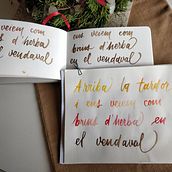 ens veiem com
brins d'herba
el vendaval
ens veiem com
brins d'herba en
el vendaval
Arriba la tardor
i ens veiem com
brins d'herba en
el vendaval